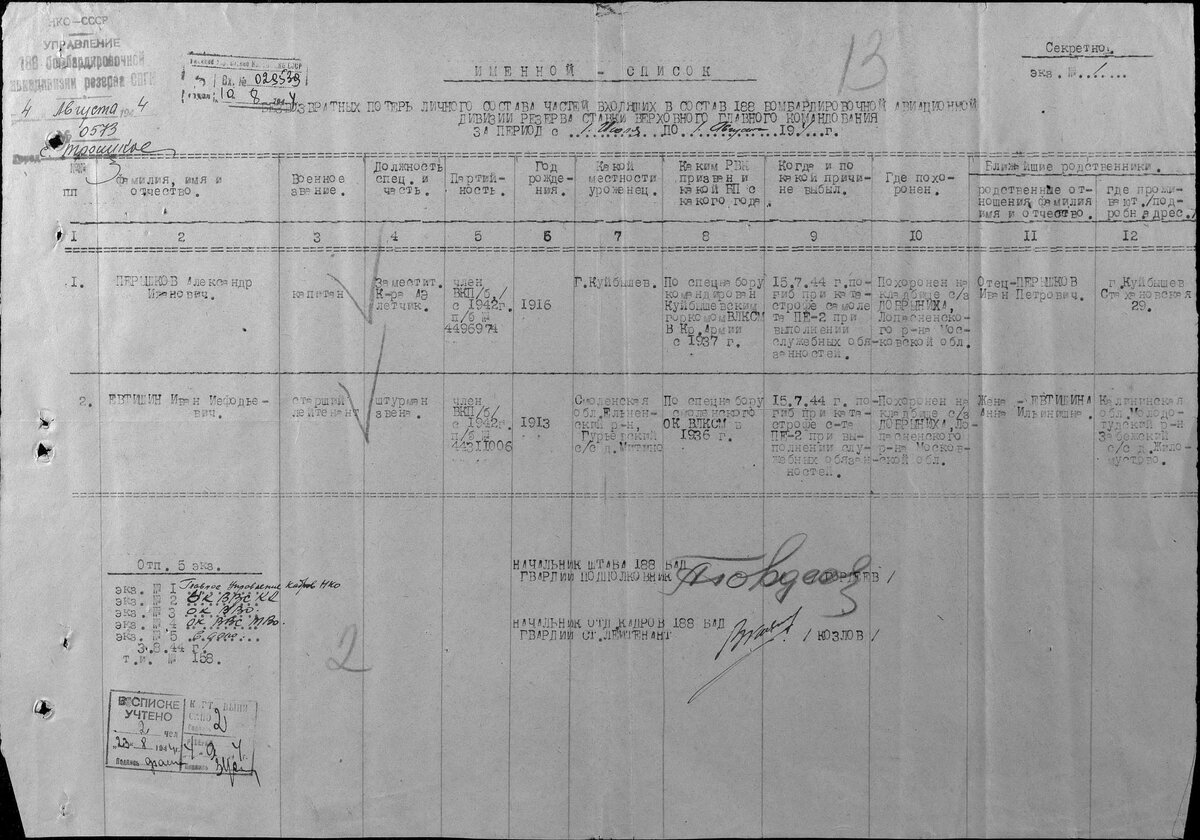 НКО-СССР
УПРАВЛЕНИЕ
188 бомбардировочной
4 Августа 1944
0573
Вх. № 029539
10 8 1944
13
Секретно.
экз. № 1
ИМЕННОЙ - СПИСОК
БЕЗВОЗВРАТНЫХ ПОТЕРЬ ЛИЧНОГО СОСТАВА ЧАСТЕЙ ВХОДЯЩИХ В СОСТАВ 188 БОМБАРДИРОВОЧНОЙ АВИАЦИОННОЙ
ДИВИЗИИ РЕЗЕРВА СТАВКИ ВЕРХОВНОГО ГЛАВНОГО КОМАНДОВАНИЯ
ЗА ПЕРИОД с 1. Июля ДО 1. Августа 194 г.
№№ пп
Фамилия, имя и отчество.
Военное звание.
Должность спец. и часть.
Партийность.
Год рождения.
Какой местности уроженец.
Каким РВК призван и какой ВП с какого года.
Когда и по какой причине выбыл.
Где похоронен.
Ближайшие родственники.
родственные отношения, фамилия имя и отчество.
где проживают./подробн. адрес./
1 2 3 4 5 6 7 8 9 10 11 12
1.
ПЕРЫШКОВ Александр
Иванович.
капитан
Заместит.
К-ра АЭ
летчик.
член
ВКП/б/
с 1942г.
п/б №
4496974
1916
г.Куйбышев.
По спецнабору
командирован
Куйбышевским
горкомом ВЛКСМ
В Кр.Армии
с 1937 г.
15.7.44 г.по-
гиб при ката-
строфе самоле
та ПЕ-2 при
выполнении
служебных обя-
занностей.
Похоронен на
кладбище с/з
ДОБРЫНИХА,
Лопасненско-
го р-на Мос-
ковской обл.
Отец-ПЕРЫШКОВ
Иван Петрович.
г.Куйбышев
Стахановская
29.
2.
ЕВТИШИН Иван Мефодье-
вич.
старший
лейтенант
штурман
звена.
член
ВКП/б/
с 1942г.
п/б №
4431006
1913
Смоленская
обл.Ельнен-
ский р-н,
Гурьевский
с/с д.Митино
По спецнабору
смоленского
ОК ВЛКСМ в
1936 г.
15.7.44 г. по-
гиб при ката-
строфе с-та
ПЕ-2 при вы-
полнении слу-
жебных обязан-
ностей.
Похоронен на
кладбище с/з
ДОБРЫНИХА, Ло-
пасненского
р-на Москов-
ской обл.
Жена - ЕВТИШИНА
Анна Ильинишна.
Калининская
обл.Молодо-
тудский р-н
с/с д.
Отп. 5 экз.
экз. № 1 Главное Управление кадров НКО
экз. № 2 ОК ВВС КА
экз. № 3 ОК МВО
экз. № 4 ОК ВВС МВО.
экз. № 5 в дело
3.8.44 г.
т.м. № 158.
2
НАЧАЛЬНИК ШТАБА 188 БАД
ГВАРДИИ ПОДПОЛКОВНИК
НАЧАЛЬНИК ОТД.КАДРОВ 188 БАД
ГВАРДИИ СТ.ЛЕЙТЕНАНТ / КОЗЛОВ /
В СПИСКЕ
УЧТЕНО
2 чел
23 8 1944г.
Подпись
2